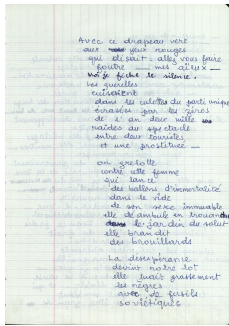 Avec ce drapeau vert
aux yeux rouges
qui disait : allez vous faire
foutre _ mes aïeux _
moi je fiche le silence.
Les querelles
cuisaient
dans les culottes du parti unique
écrasées par les zéros
de l'an deux mille
raidés du spectacle
entre deux touristes
et une prostituée _
on grelotte
contre cette femme
qui lance
des ballons d'immortalité
dans le vide
de son sexe immuable
elle déambule en trouant
le jardin du salut
elle brandit
des brouillards
La désespérance
devint notre lot
elle tuait grassement
les nègres
avec de fusils
soviétiques